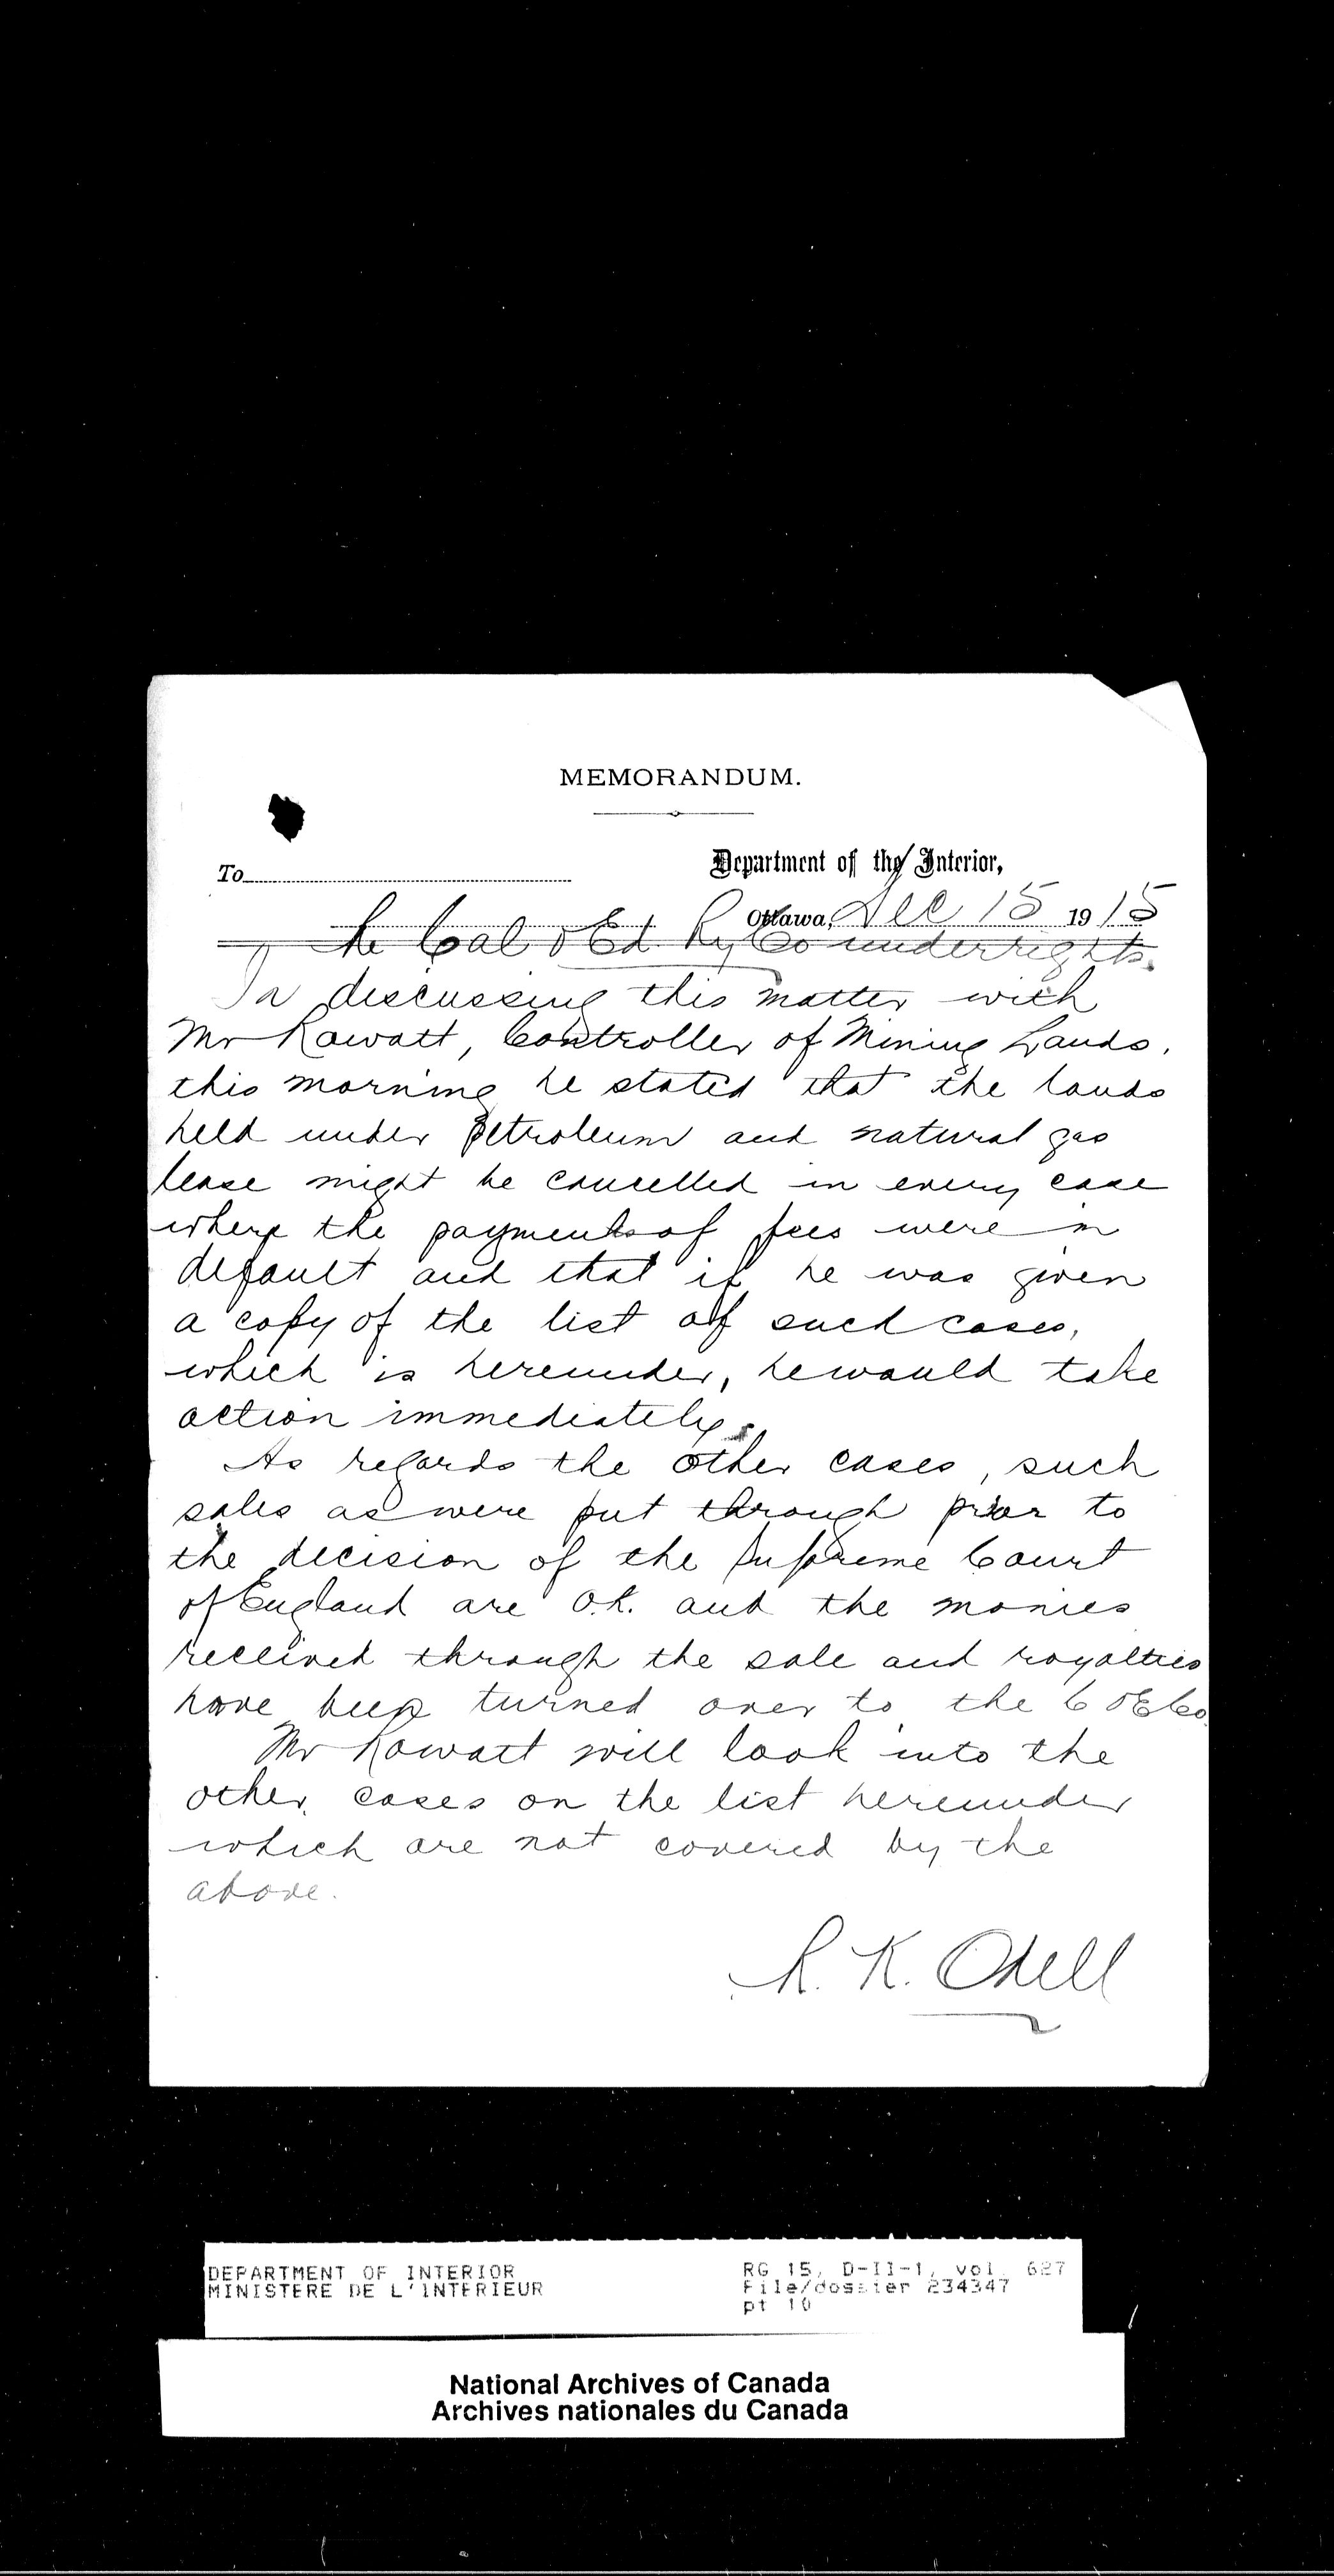 MEMORANDUM.
To
Department of the Interior,
Ottawa, Dec 15 1915
Re Cal & Ed Ry Co underrights.
In discussing this matter with
Mr Rowatt, Controller of Mining Lands,
this morning he stated that the lands
held under petroleum and natural gas
lease might be cancelled in every case
where the payments of fees were in
default and that if he was given
a copy of the list of such cases,
which is hereunder, he would take
action immediately.
As regards the other cases, such
sales as were put through prior to
the decision of the Supreme Court
of England are O.K. and the monies
received through the sale and royalties
have been turned over to the C & E Co.
Mr Rowatt will look into the
other cases on the list hereunder
which are not covered by the
above.
R. K. Odell
DEPARTMENT OF INTERIOR
MINISTERE DE L'INTERIEUR
RG 15, D-II-1, vol. 627
File/dossier 234347
pt 10
National Archives of Canada
Archives nationales du Canada